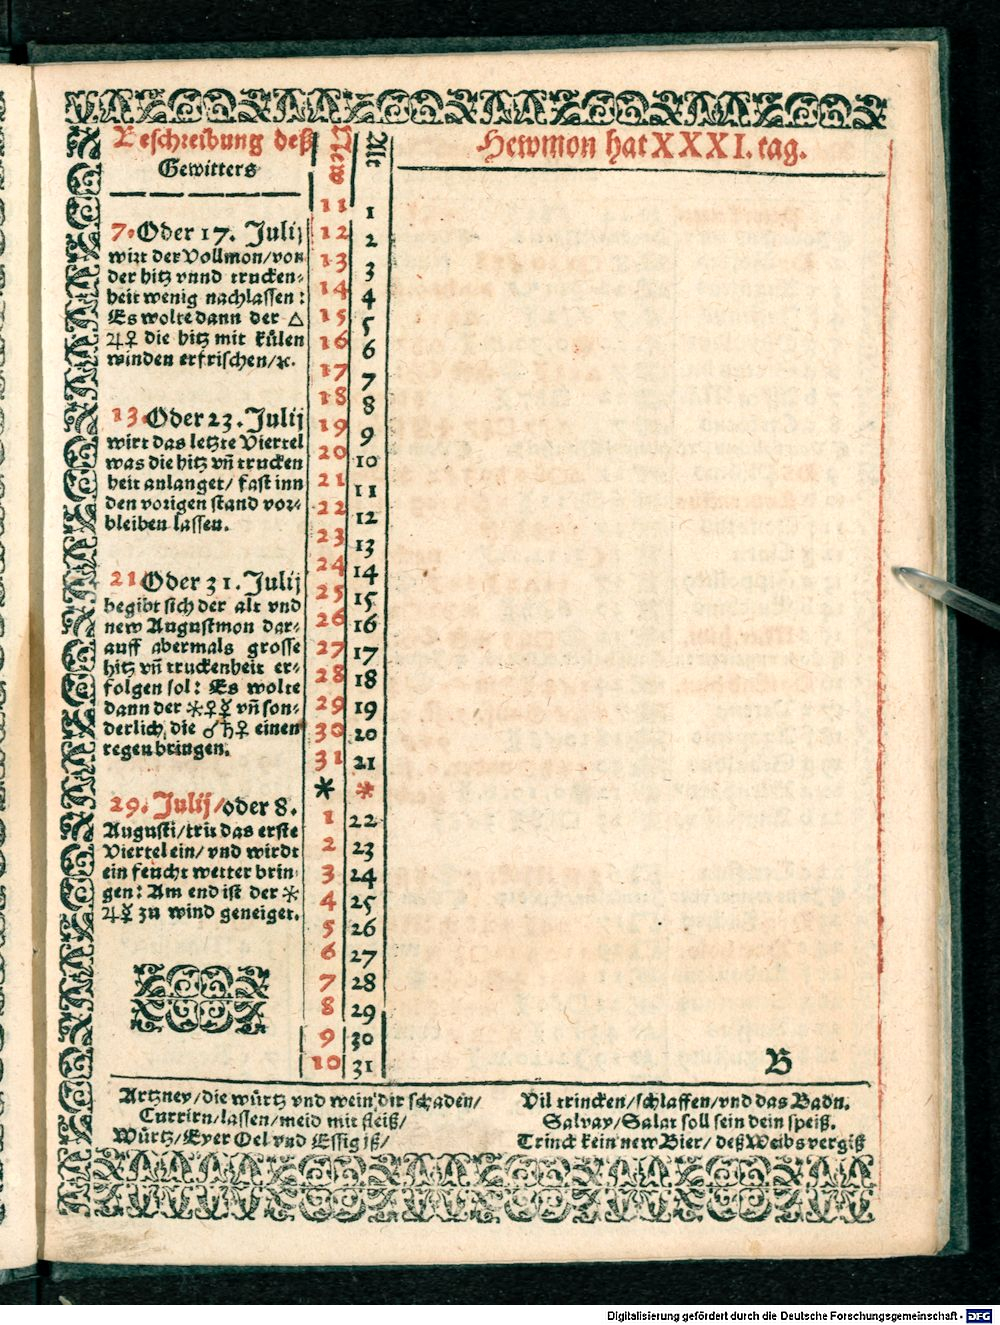 Beschreibung deß
Gewitters
New
Alt
Hewmon hat XXXI. tag.
7. Oder 17. Julij
wirt der Vollmon/von
der hitz vnnd trucken-
heit wenig nachlassen:
Es wolte dann der △
♃♀ die hitz mit külen
winden erfrischen/ꝛc.
13. Oder 23. Julij
wirt das letzte Viertel
was die hitz vñ trucken
heit anlanget/ fast inn
den vorigen stand vor-
bleiben lassen.
21. Oder 31. Julij
begibt sich der alt vnd
new Augustmon dar-
auff abermals grosse
hitz vñ truckenheit er-
folgen sol: Es wolte
dann der ⚹♀☿ vñ son-
derlich die ♂♄♀ einen
regen bringen.
29. Julij/oder 8.
Augusti/trit das erste
Viertel ein/ vnd wirdt
ein feucht wetter brin-
gen: Am end ist der ⚹
♃☿ zu wind geneiget.
11 1
12 2
13 3
14 4
15 5
16 6
17 7
18 8
19 9
20 10
21 11
22 12
23 13
24 14
25 15
26 16
27 17
28 18
29 19
30 20
31 21
* *
1 22
2 23
3 24
4 25
5 26
6 27
7 28
8 29
9 30
10 31
B
Artzney/die würtz vnd wein dir schaden/
Currirn/lassen/meid mit fleiß/
Würtz/Eyer Oel vnd Essig iß/
Vil trincken/schlaffen/vnd das Badn.
Salvay/Salat soll sein dein speiß.
Trinck kein new Bier/ deß Weibs vergiß
Digitalisierung gefördert durch die Deutsche Forschungsgemeinschaft - DFG